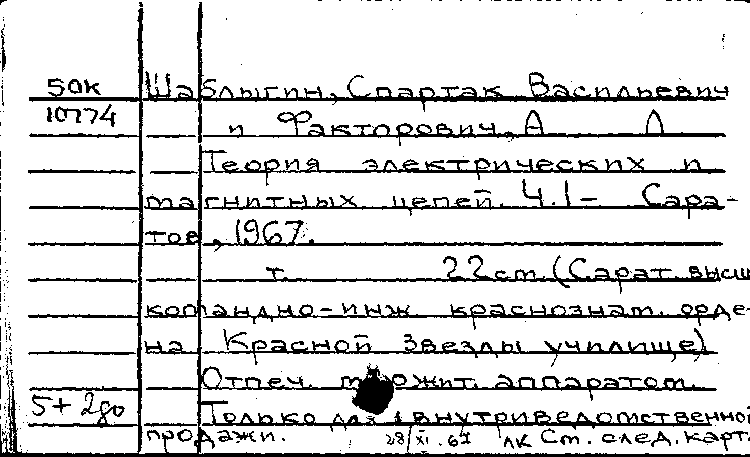 50к Шаблыгин, Спартак Васильевич
10774 и Факторович, А Л
Теория электрических и
магнитных цепей. Ч.1- Сара-
тов, 1967.
т. 22 см. (Сарат. высш
командно-инж краснознам. орде-
на Красной Звезды училище)
Отпеч. множит. аппаратом.
5+2до Только для внутриведомственной
продажи. 28/XI.67 ЛК См. след. карт.